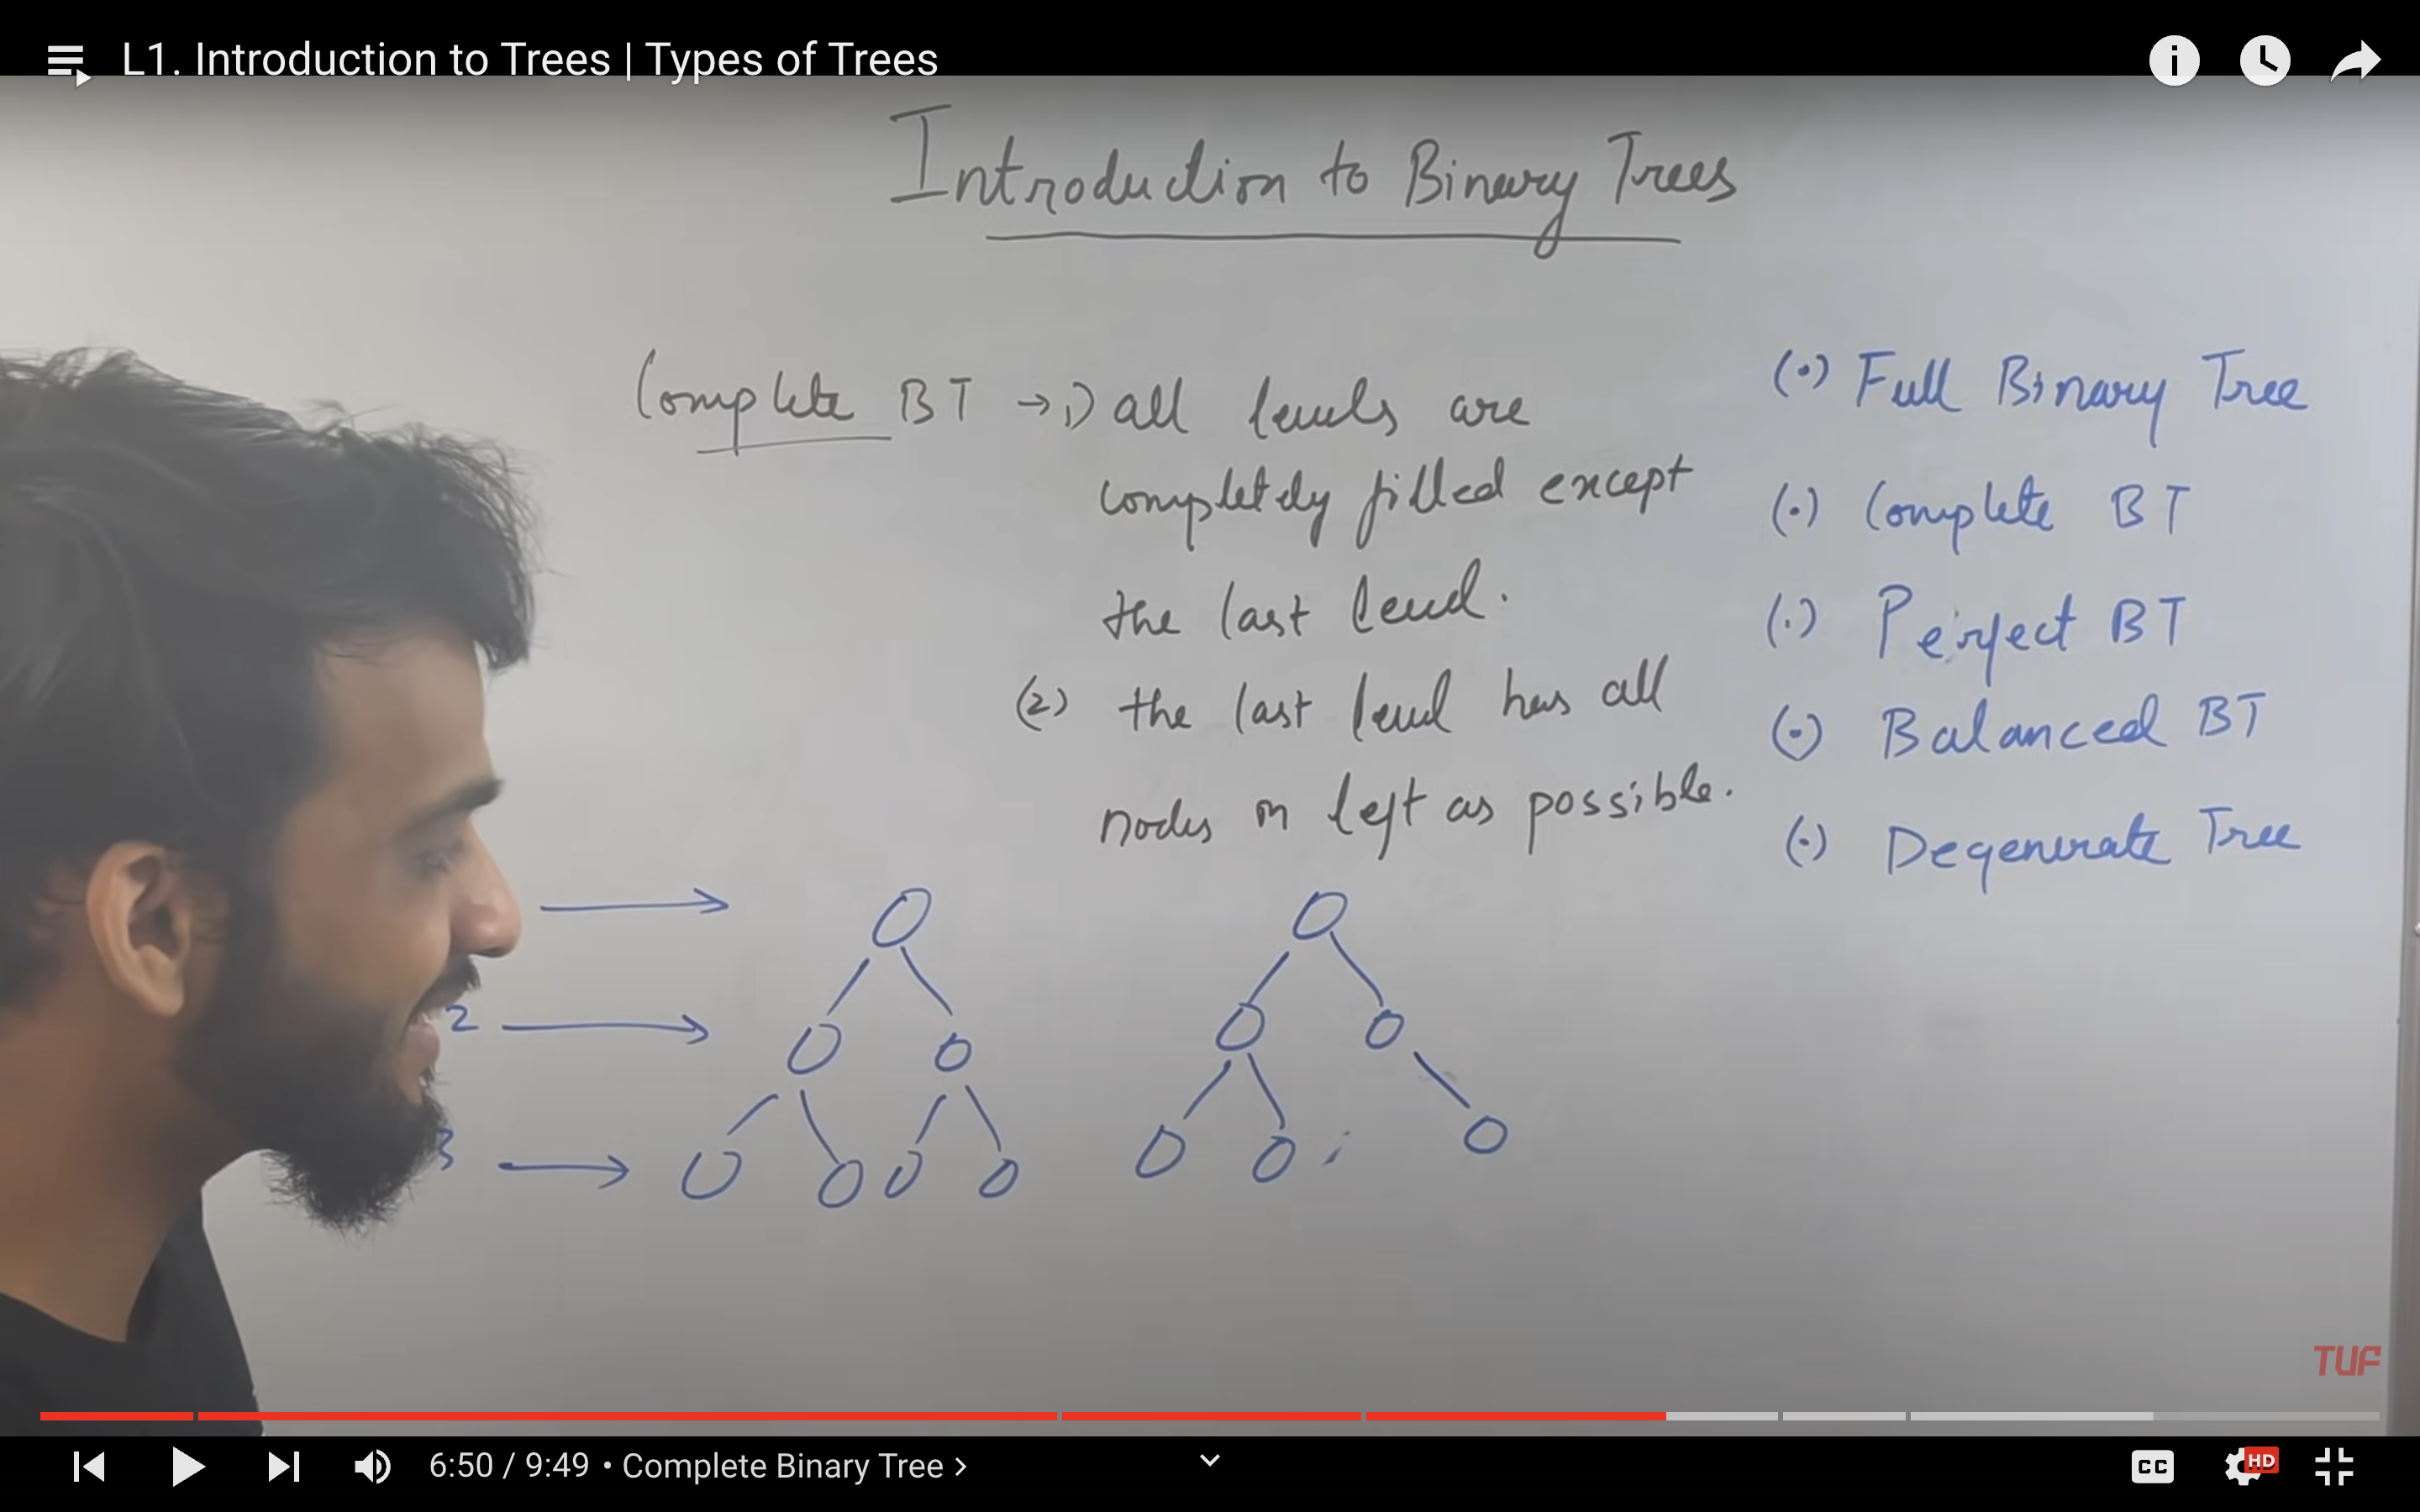 L1. Introduction to Trees | Types of Trees
Introduction to Binary Trees
Complete BT → 1) all levels are
completely filled except
the last level.
(2) the last level has all
nodes on left as possible.
(•) Full Binary Tree
(•) Complete BT
(•) Perfect BT
(•) Balanced BT
(•) Degenerate Tree
2
3
TUF
6:50 / 9:49 • Complete Binary Tree >
CC
HD